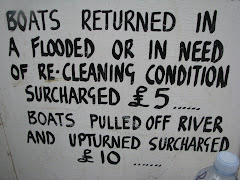 BOATS RETURNED IN
A FLOODED OR IN NEED
OF RE-CLEANING CONDITION
SURCHARGED £5......
BOATS PULLED OFF RIVER
AND UPTURNED SURCHARGED
£10 ......